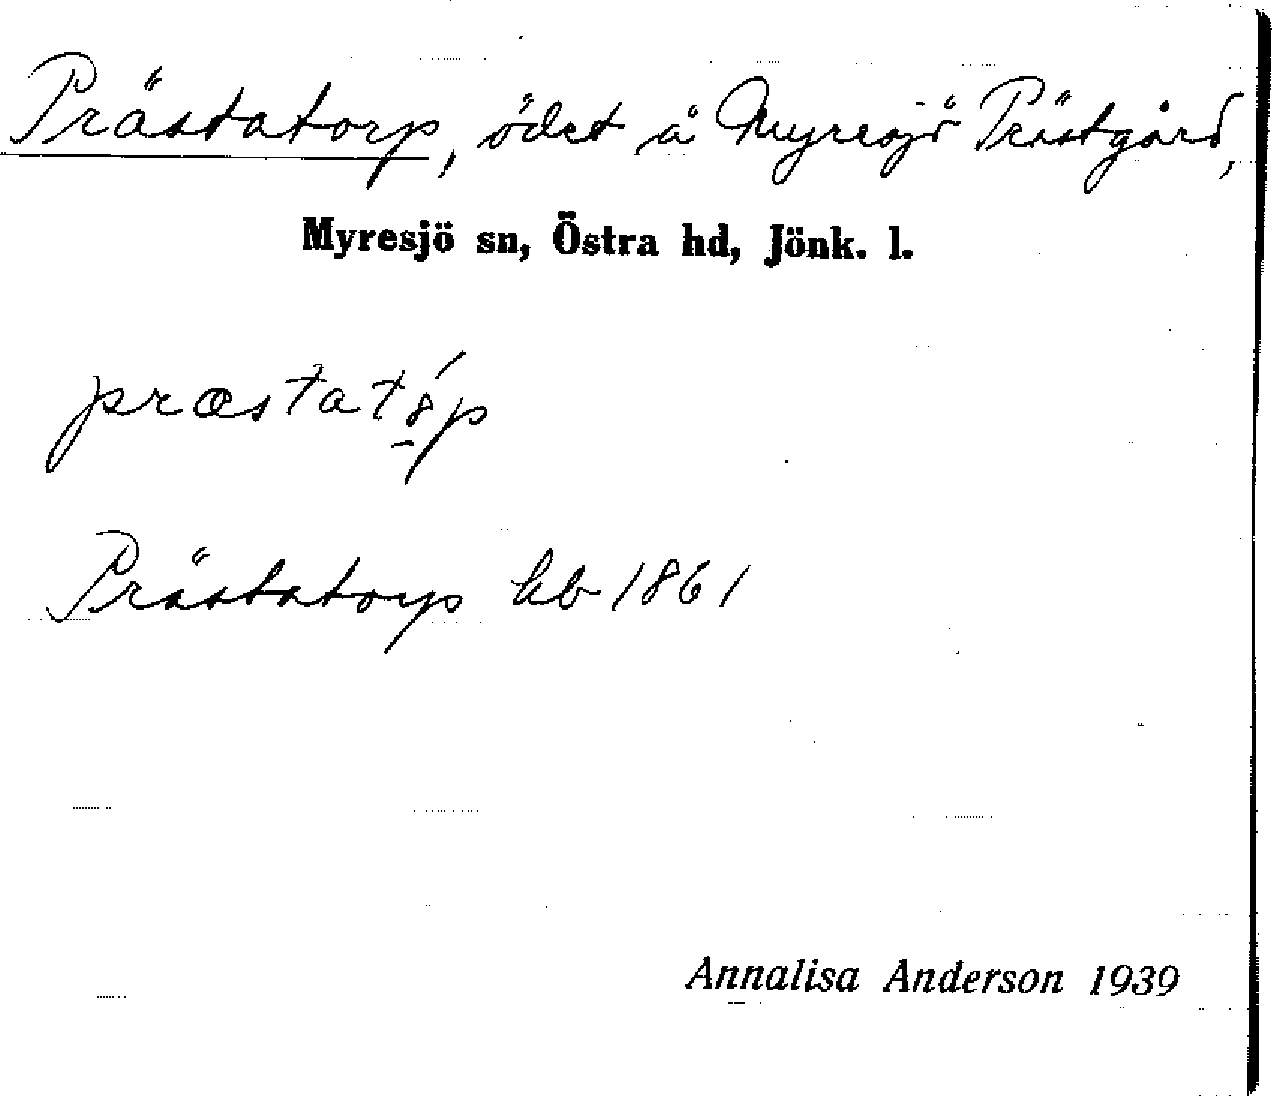 Prästatorp, ödet å Myresjö Prästgård,
Myresjö sn, Östra hd, Jönk. l.
Prästatorp hb 1861
Annalisa Anderson 1939